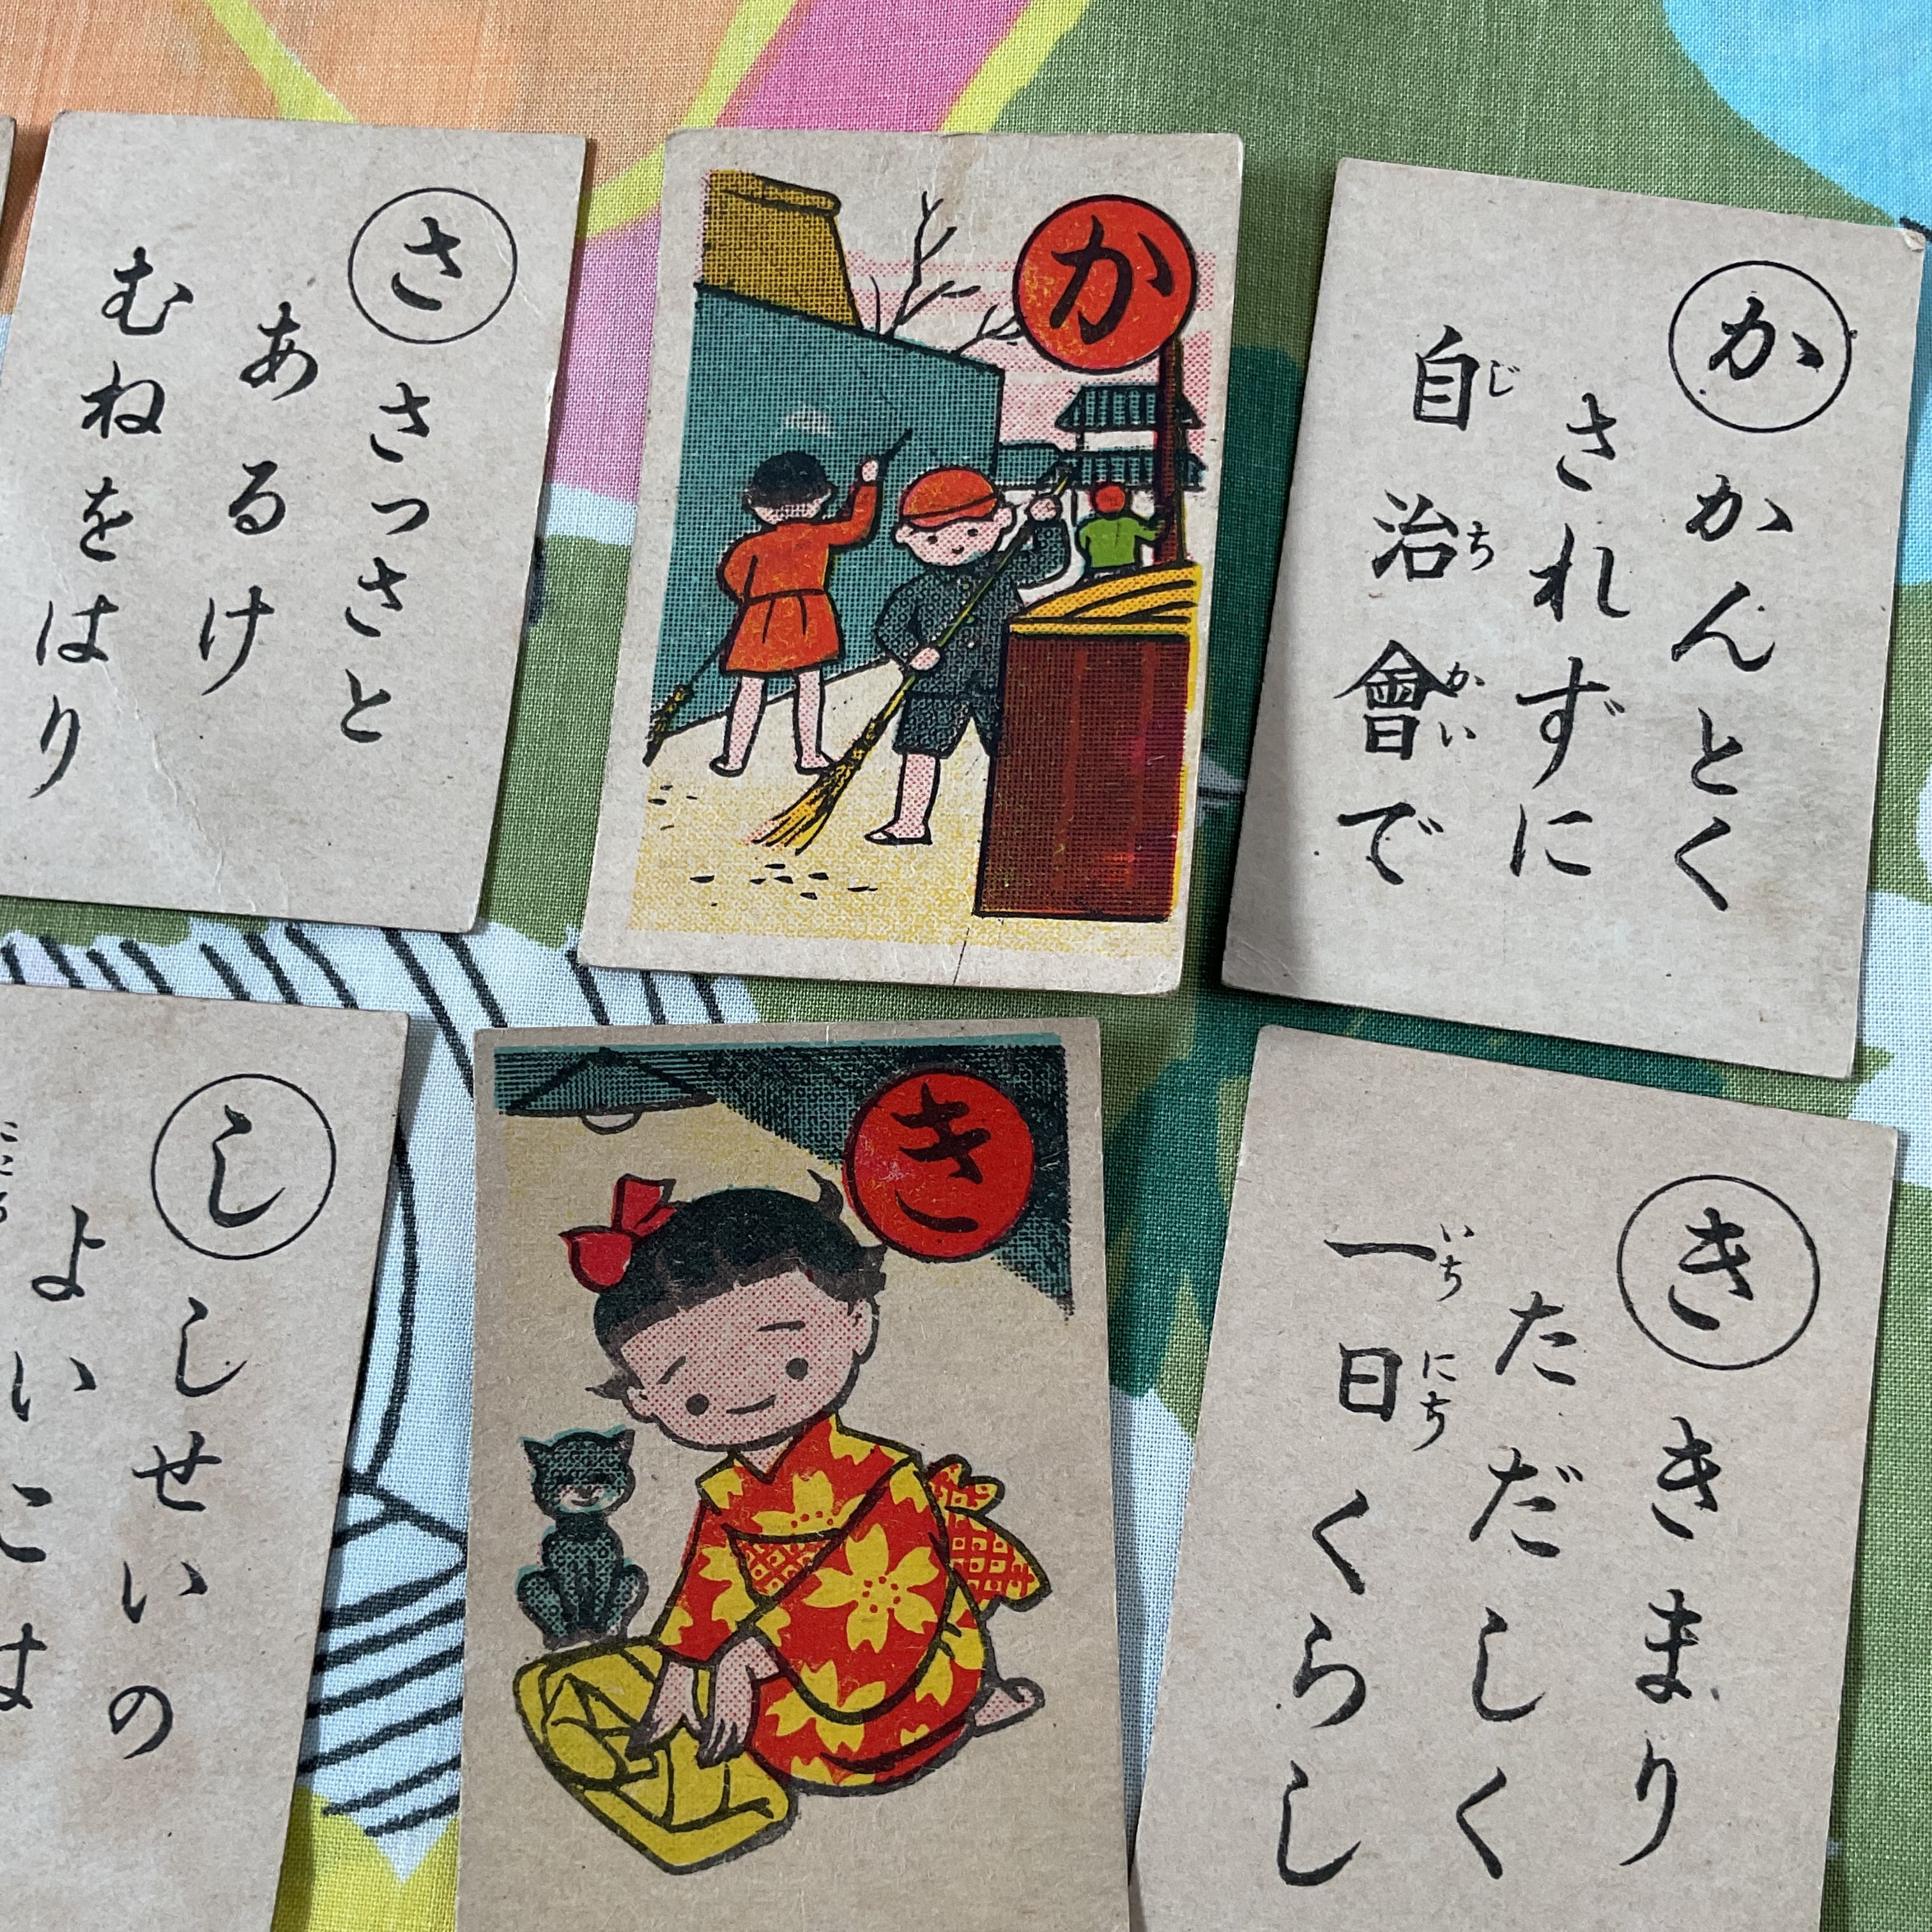 か
かんとく
されずに
自治會で
じちかい
か
さ
さっさと
あるけ
むねをはり
き
きまり
ただしく
一日くらし
いちにち
き
し
しせいの
よいこは